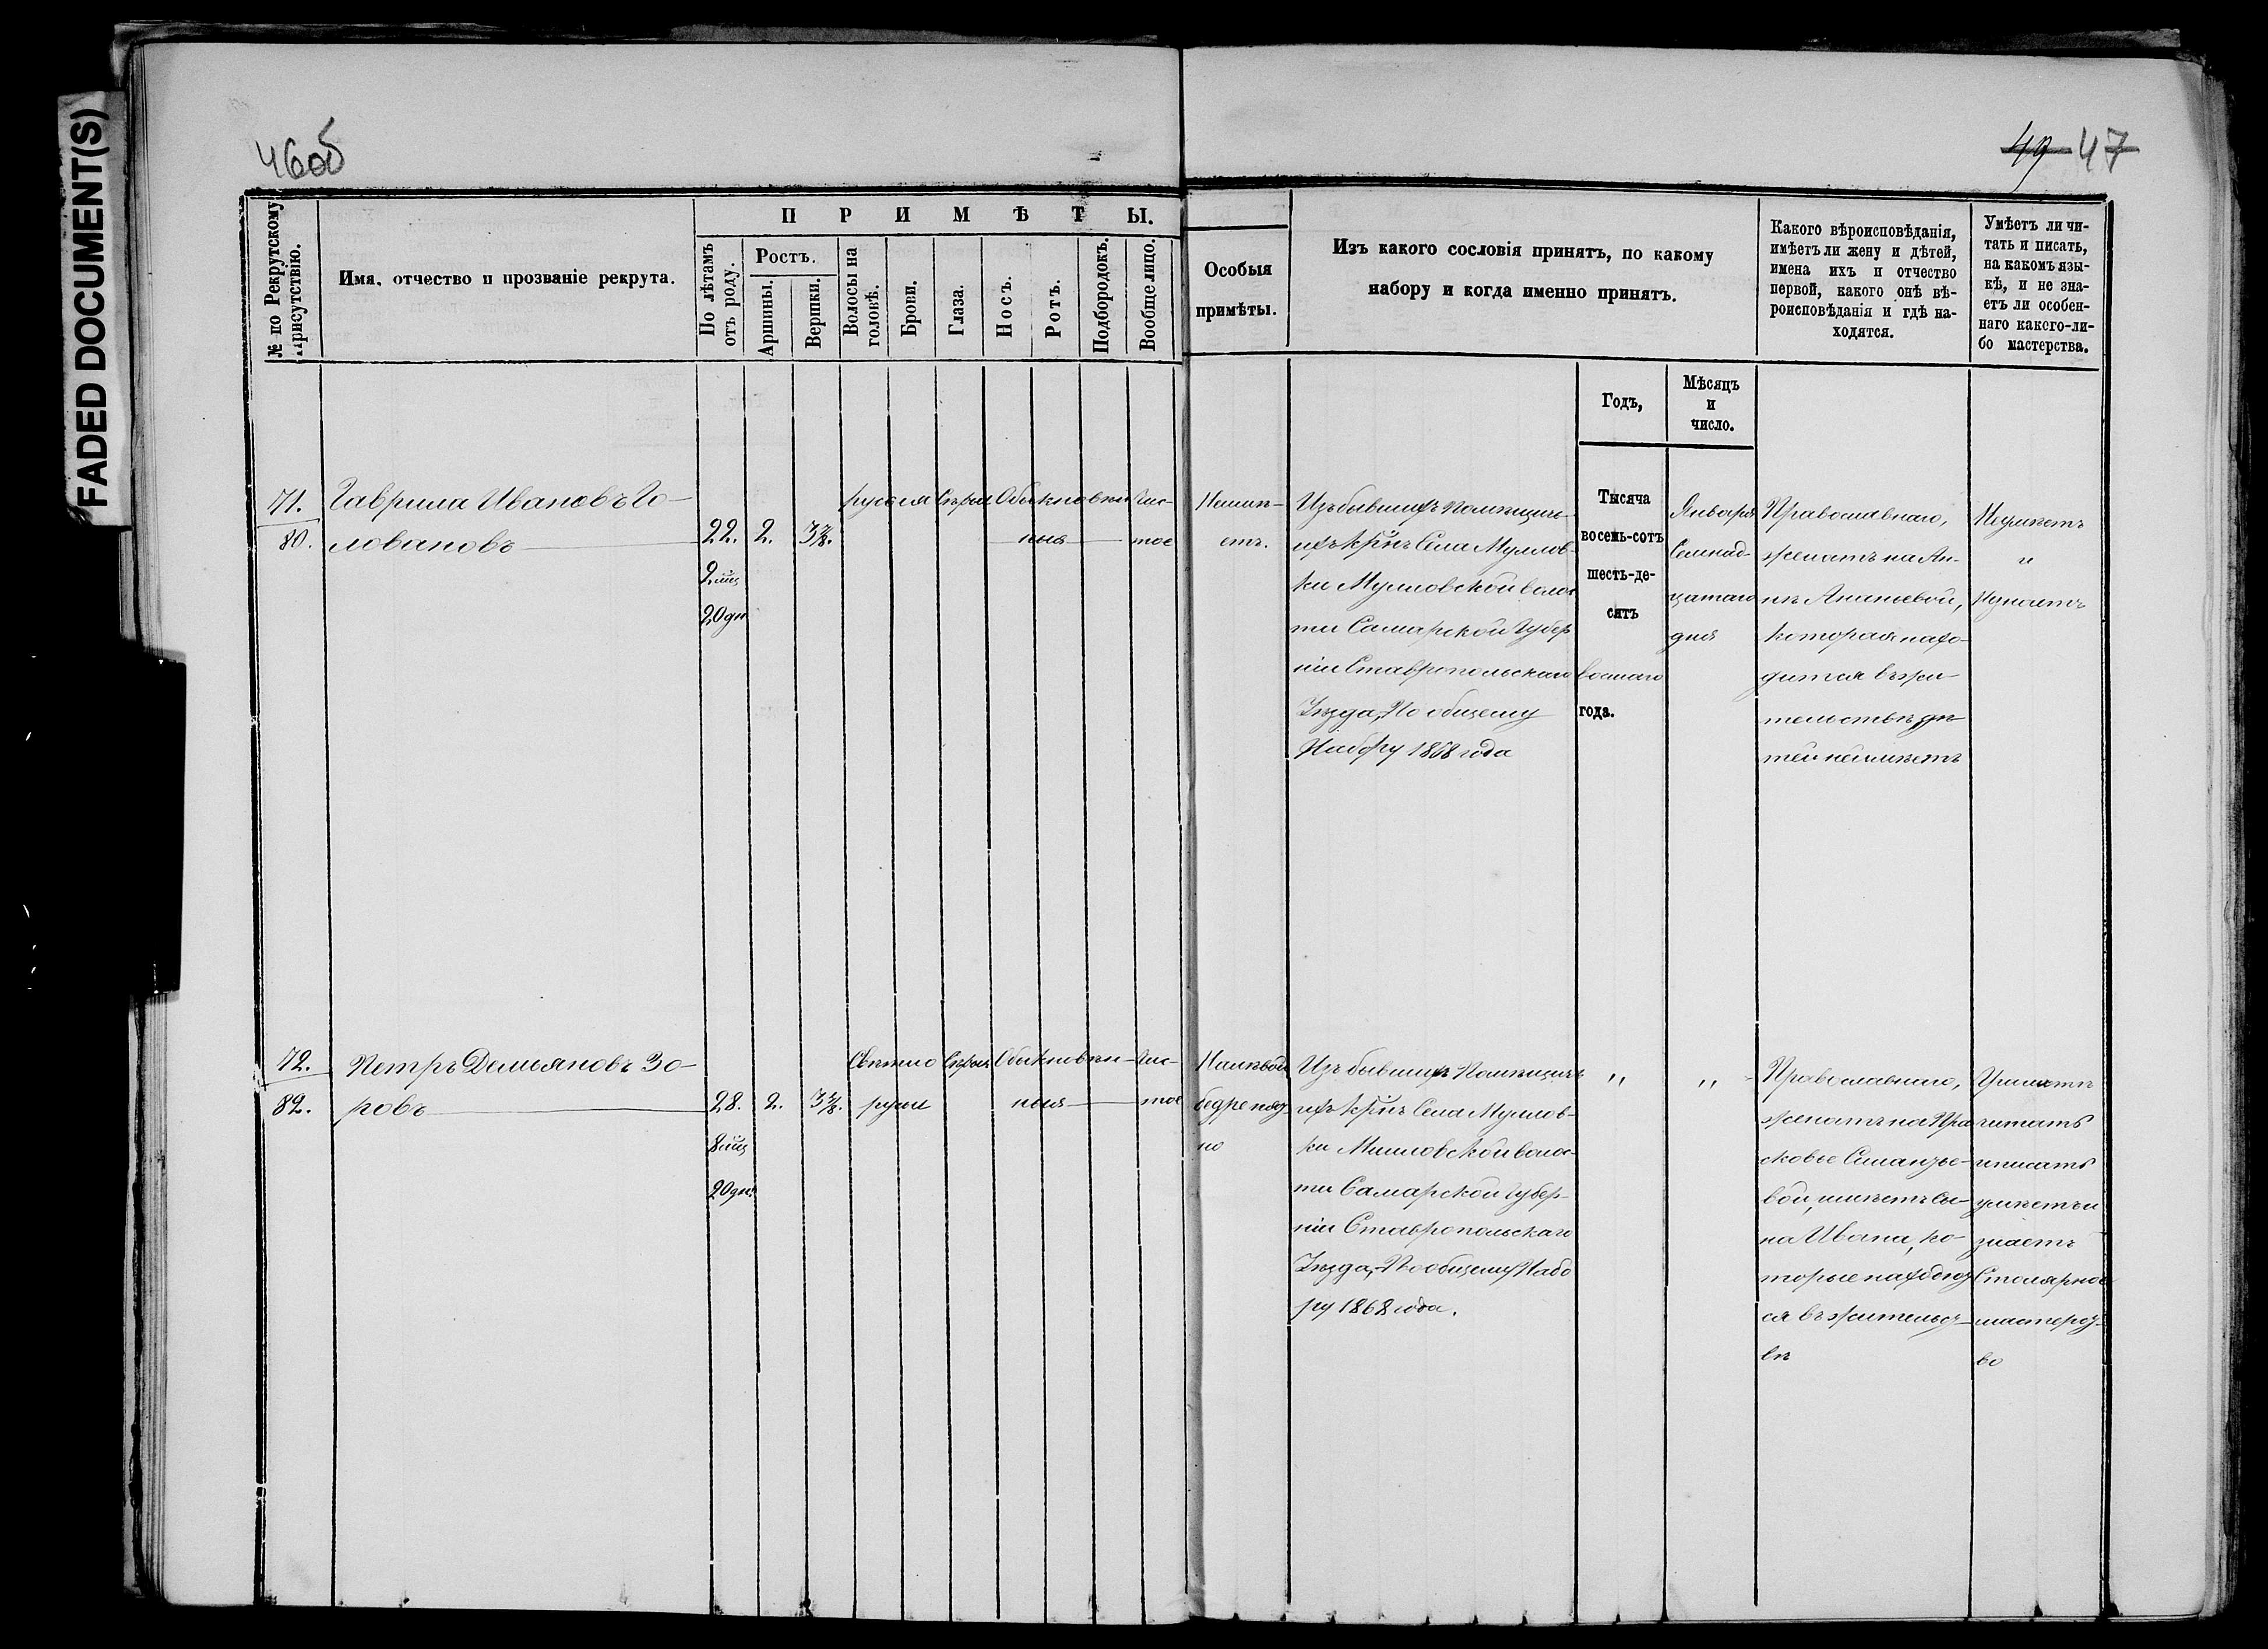 FADED DOCUMENT(S)
46об
49 47
№ по Рекрутскому
присутствію.
Имя, отчество и прозваніе рекрута.
ПРИМѢТЫ.
По лѣтамъ
отъ роду.
Ростъ.
Аршины.
Вершки.
Волосы на
головѣ.
Брови.
Глаза.
Носъ.
Ротъ.
Подбородокъ.
Вообще лицо.
Особыя
примѣты.
Изъ какого сословія принятъ, по какому
набору и когда именно принятъ.
Какого вѣроисповѣданія,
имѣетъ ли жену и дѣтей,
имена ихъ и отчество
первой, какого онѣ вѣ-
роисповѣданія и гдѣ на-
ходятся.
Умѣетъ ли чи-
тать и писать,
на какомъ язы-
кѣ, и не зна-
етъ ли особен-
наго какого-ли-
бо мастерства.
Годъ,
Мѣсяцъ
и
число.
71.
80.
Гаврила Ивановъ Го-
ловановъ
22.
9 мц
20 дн
2.
3 7/8.
русыя
Сѣрыя
Обыкновен-
ныя
Чис-
тое
Неимѣ-
етъ.
Изъ бывшихъ Помѣщичь-
ихъ Крнъ Села Муллов-
ки Мулловской волос
ти Самарской Губер
ніи Ставропольскаго
Уѣзда, По общему
Набору 1868 года
Тысяча
восемь-сотъ
шесть-де-
сятъ
восмаго
года.
Января
Семнад-
цатаго
дня
Православнаго,
женатъ на Ан-
нѣ Ананьевой,
которая нахо-
дится въ жи-
тельствѣ дѣ
тей неимѣетъ
Неумѣетъ
и
Незнаетъ
72.
82.
Петръ Демьяновъ Зо-
ровъ
28.
8 мц
20 дн.
2.
3 7/8.
Свѣтло
русы
Сѣрыя
Обыкновен-
ныя
Чис-
тое
бедре
но
Изъ бывшихъ Помѣщичь
ихъ Крнъ Села Муллов-
ки Мулловской волос-
ти Самарской Губер-
ніи Ставропольскаго
Уѣзда, По общему Набо
ру 1868 года.
,, ,,
Православнаго,
женатъ на Пра
сковье
вой, имѣетъ Сы-
на Ивана, ко-
торые находят
ся въ жительст-
вѣ
читать
и писать
умѣетъ и
знаетъ
Столярное
мастерст-
во